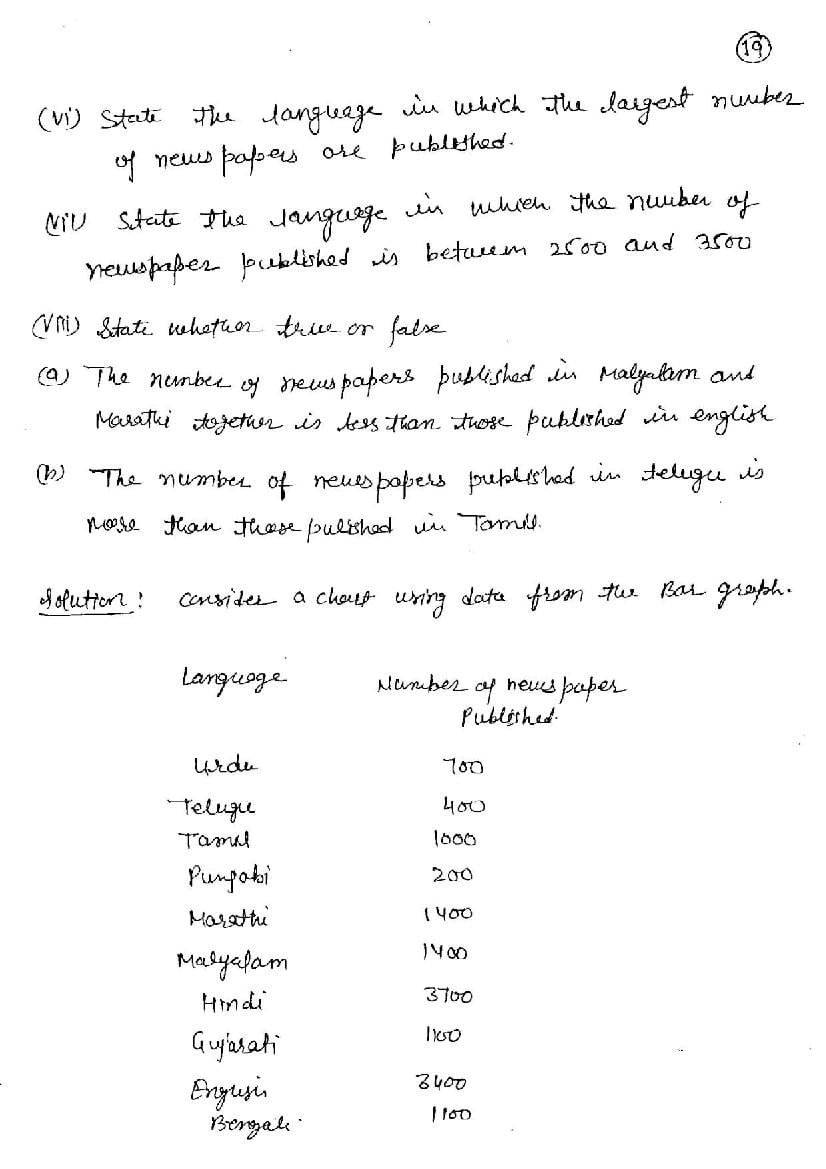 19
(vi) State the language in which the largest number
of newspapers are published.
(vii) State the language in which the number of
newspaper published is between 2500 and 3500
(viii) State whether true or false
(a) The number of newspapers published in Malyalam and
Marathi together is less than those published in english
(b) The number of newspapers published in telugu is
more than those pulished in Tamil.
Solution: Consider a chart using data from the Bar graph.
Language Number of newspaper
Published.
Urdu 700
Telugu 400
Tamil 1000
Punjabi 200
Marathi 1400
Malyalam 1400
Hindi 3700
Gujarati 1100
English 3400
Bengali 1100